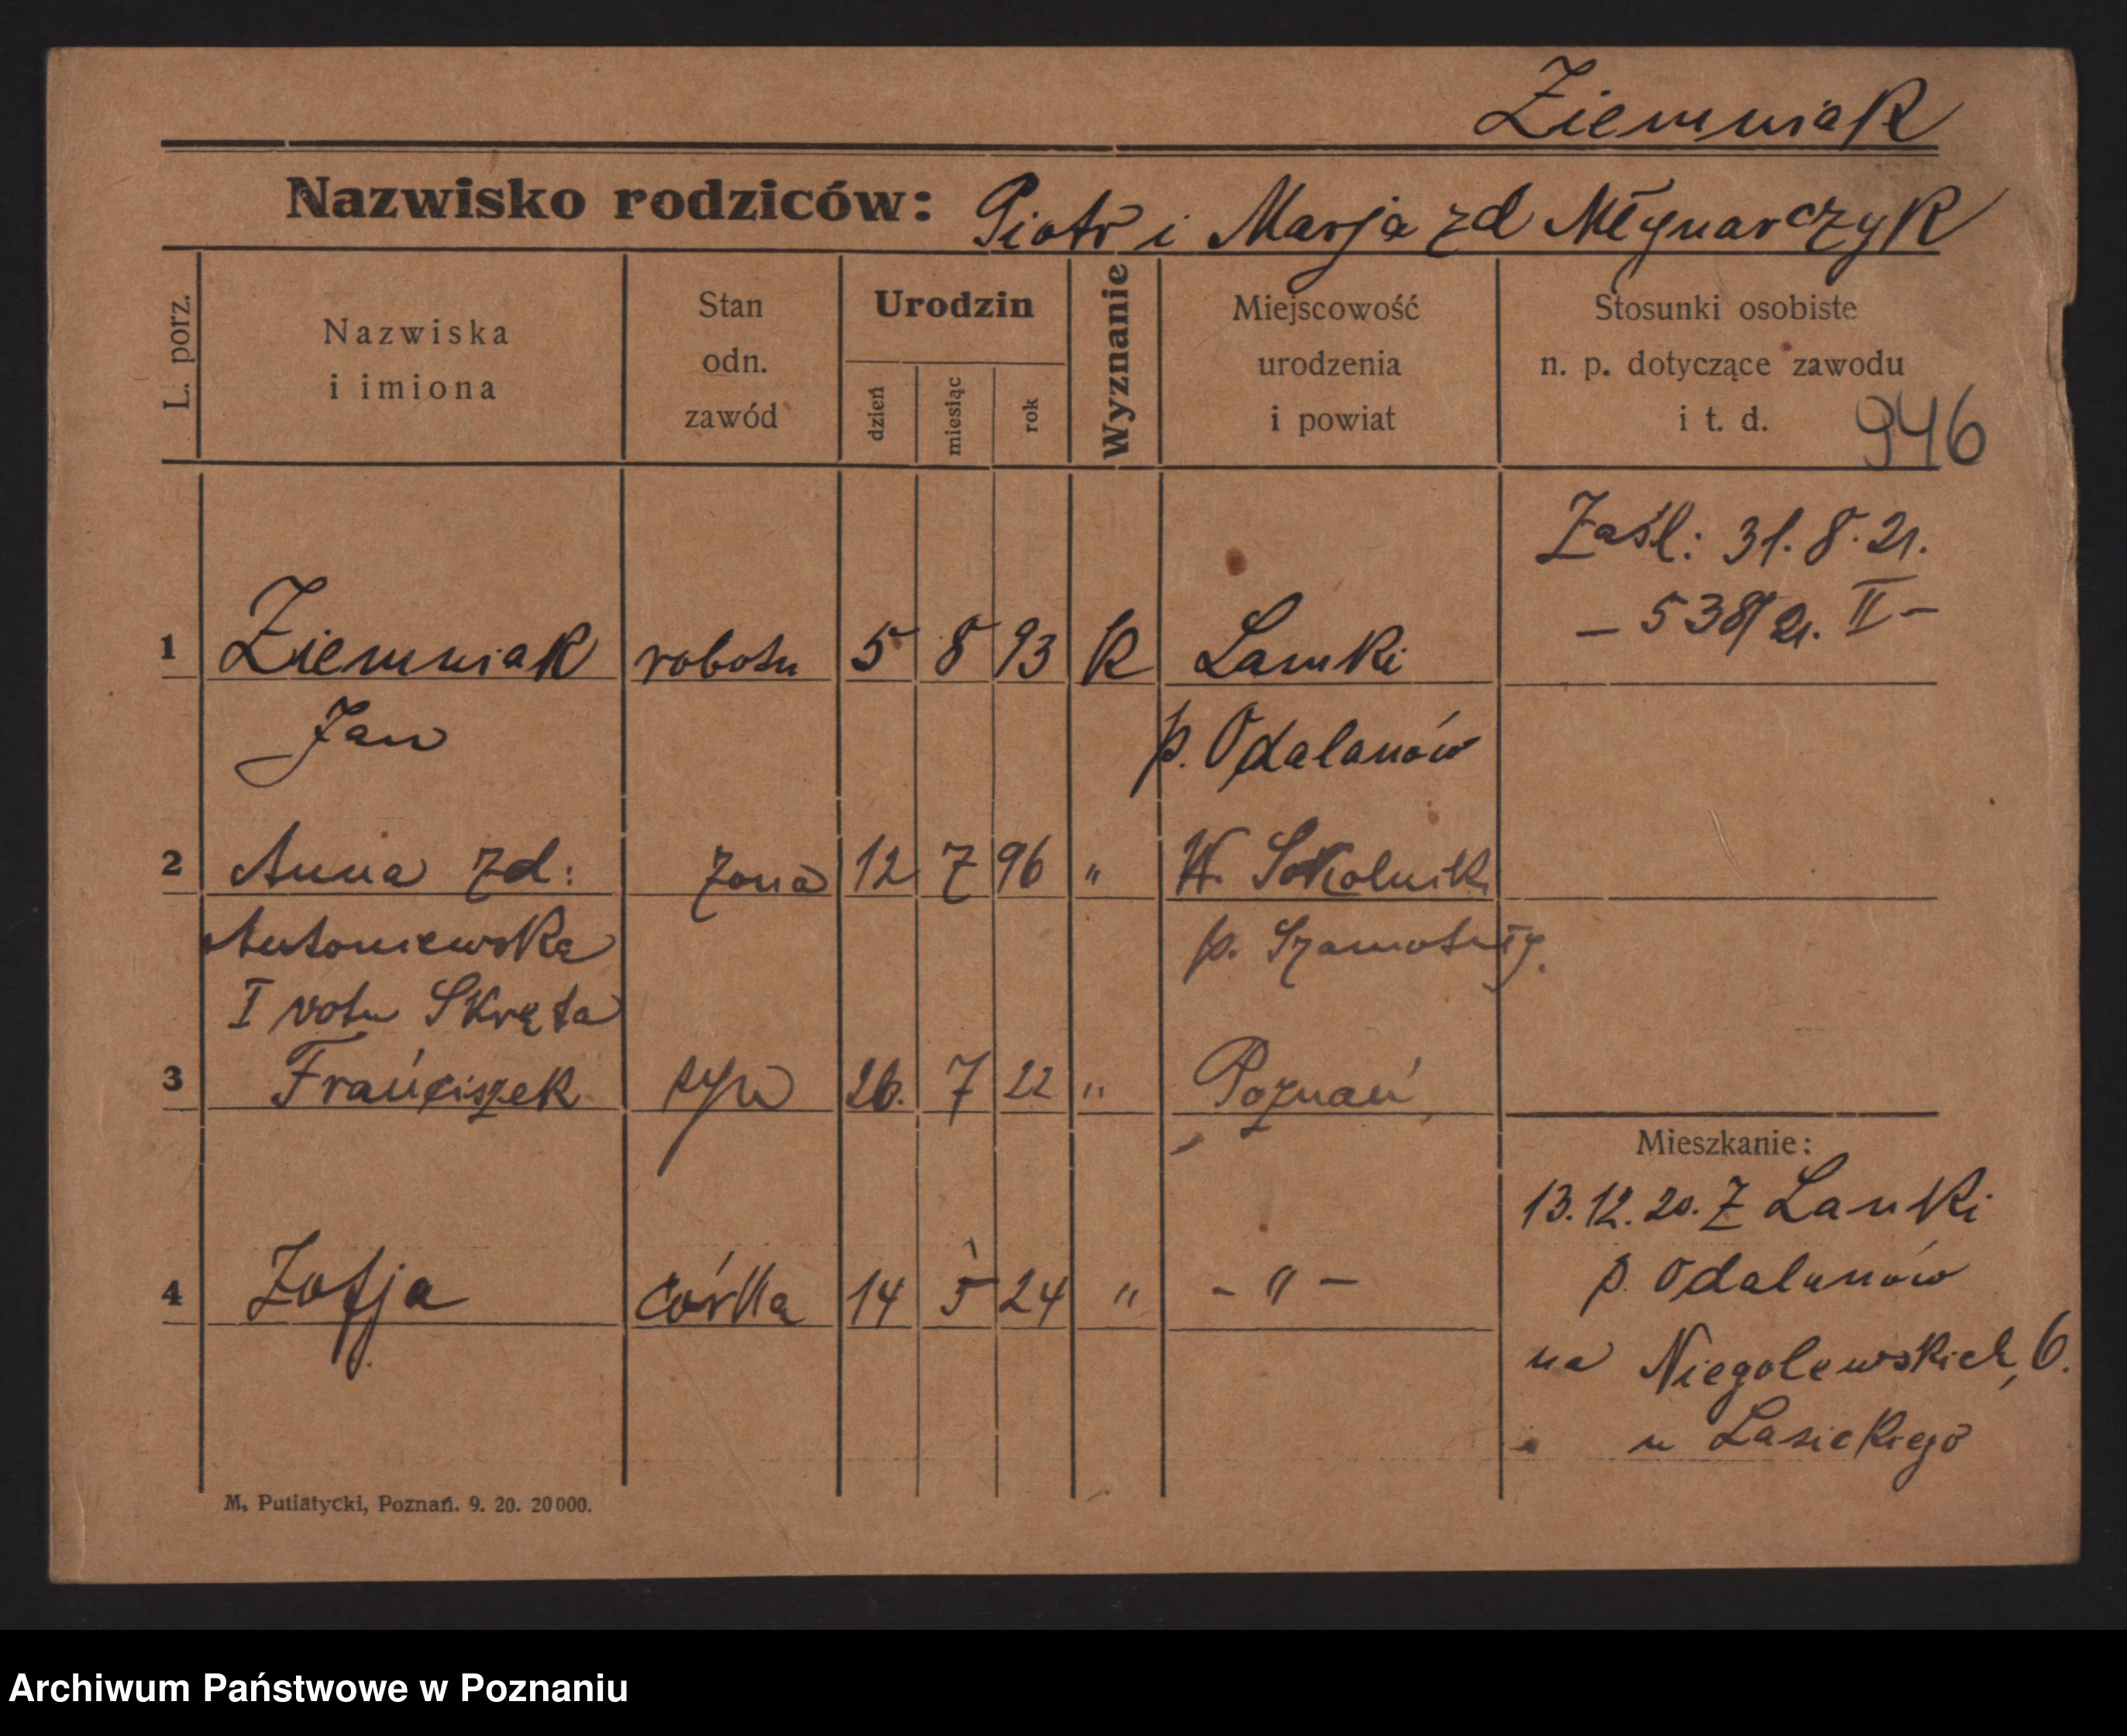 Ziemniak
Nazwisko rodziców: Piotr i Marja zd Młynarczyk
L. porz.
Nazwiska
i imiona
Stan
odn.
zawód
Urodzin
dzień
miesiąc
rok
Wyznanie
Miejscowość
urodzenia
i powiat
Stosunki osobiste
n. p. dotyczące zawodu
i t. d.
946
Zaśl: 31. 8. 21.
– 538/21. II –
1 Ziemniak robotn 5 8 93 K Lamki
Jan p. Odalanów
2 Anna zd: żona 12 7 96 " W. Sokolniki
Antoniewska p. Szamotuły.
I votu Skręta
3 Franciszek syn 26. 7 22 " Poznań
Mieszkanie:
13. 12. 20. Z Lamki
p. Odalanów
4 Zofja córka 14 5 24 " - " -
na Niegolewskich, 6.
u Lasickiego
M. Putiatycki, Poznań. 9. 20. 20000.
Archiwum Państwowe w Poznaniu